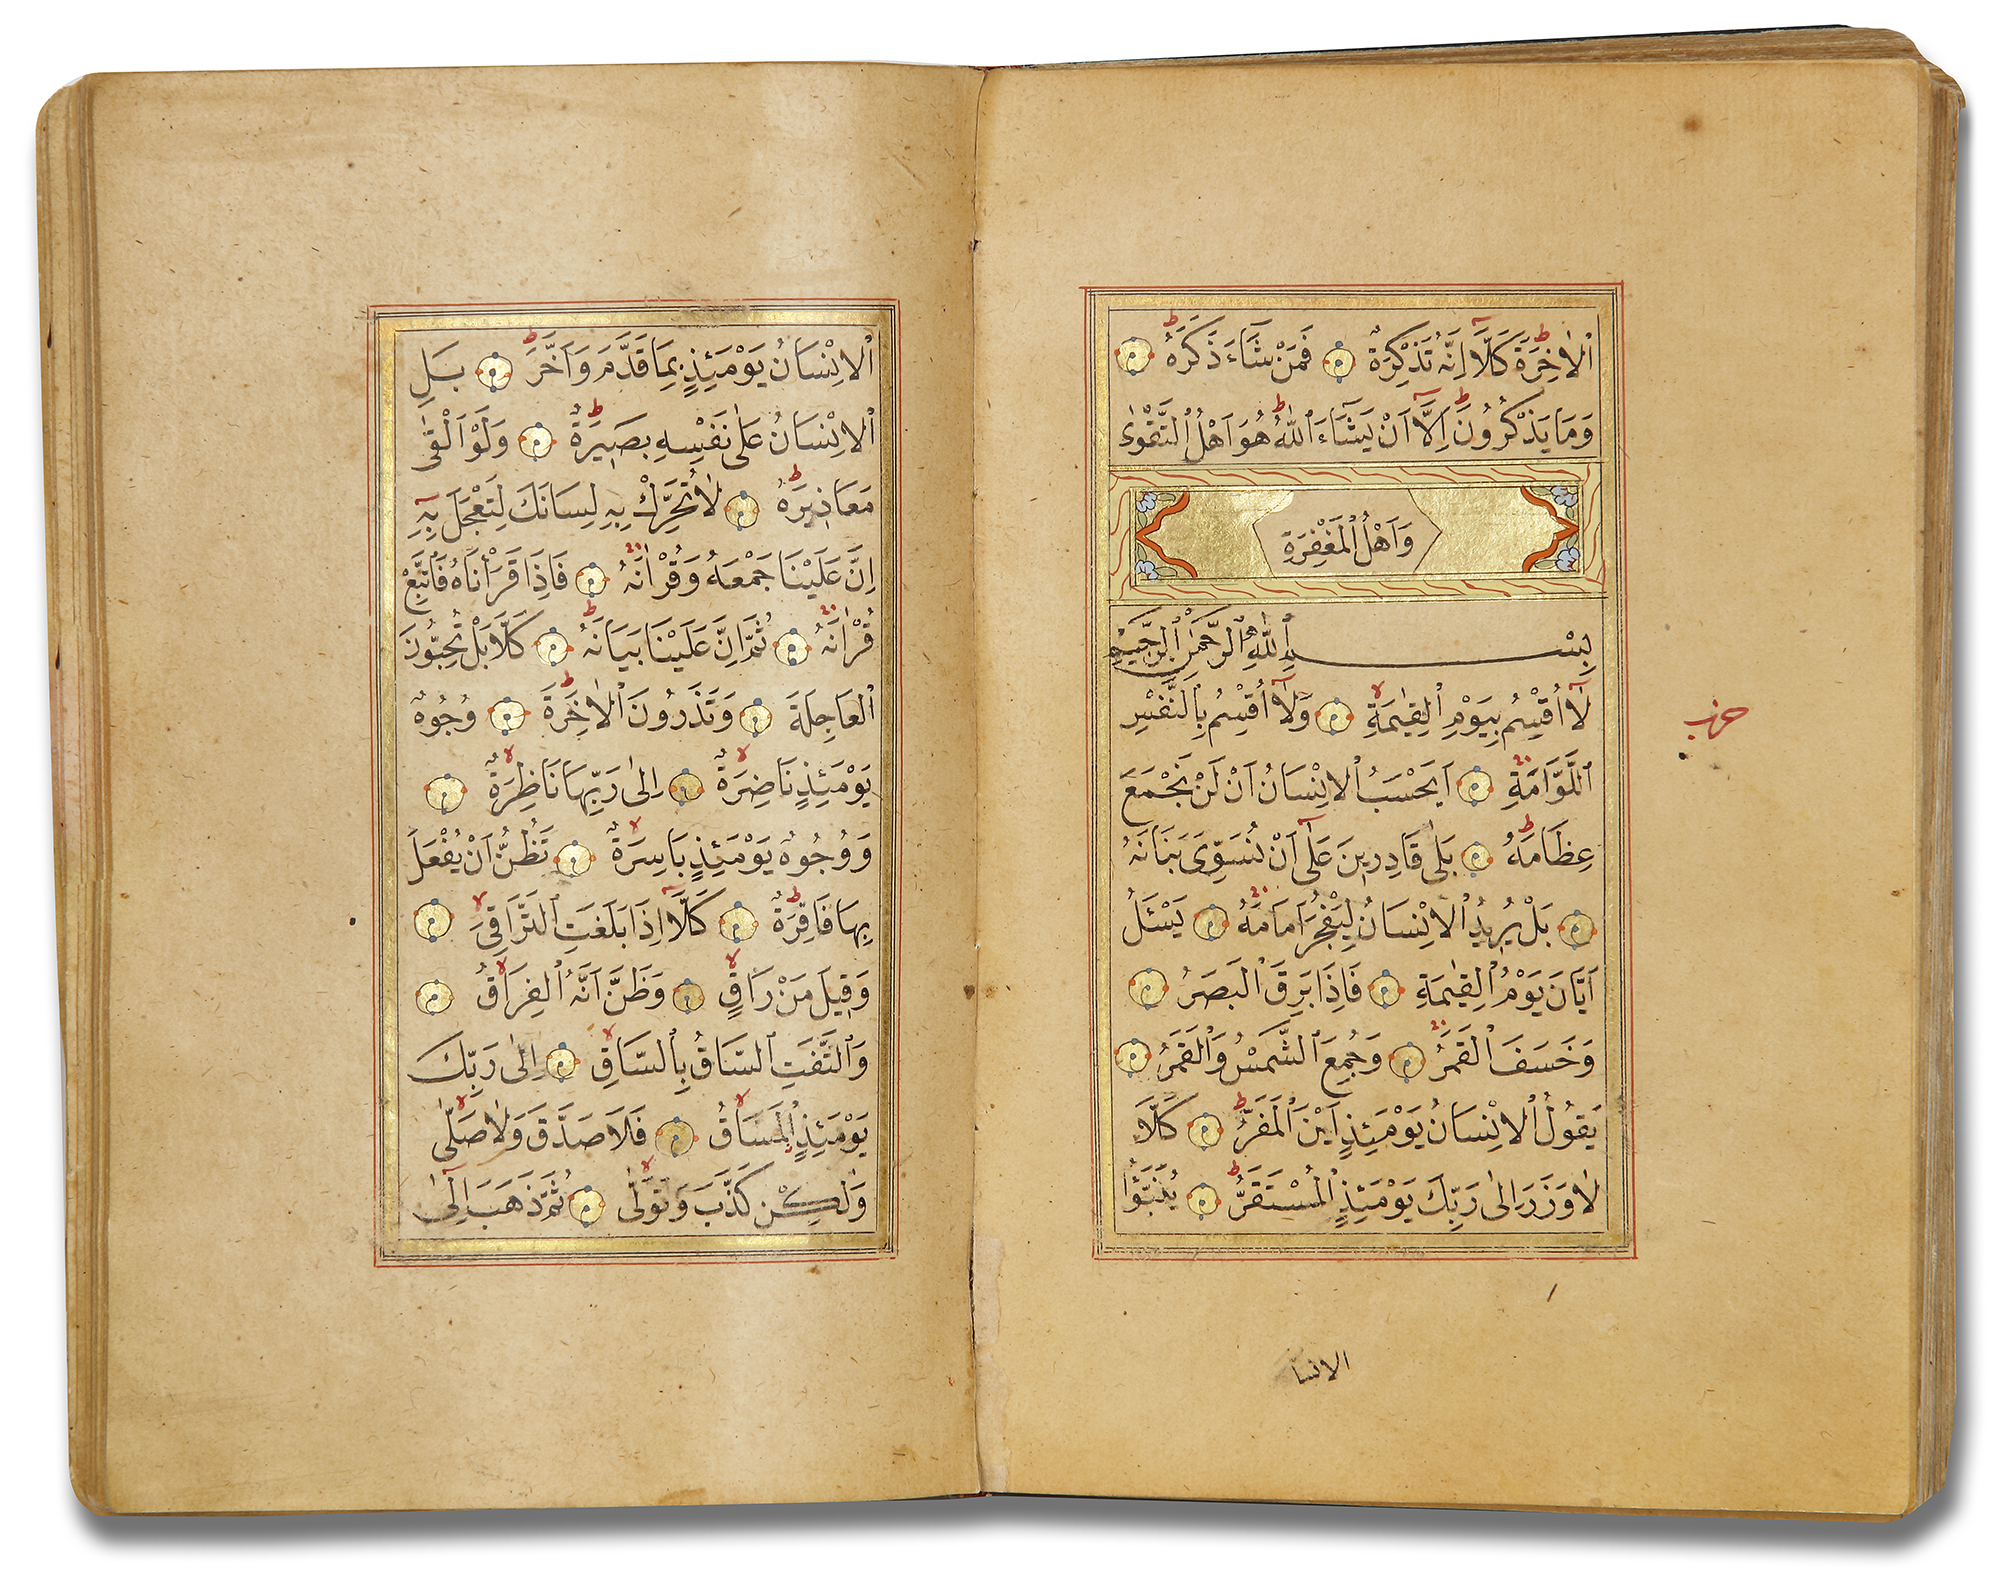 اْلاٰخِرَةَ كَلَّٓا اِنَّهُ تَذْكِرَةٌ فَمَنْ شَٓاءَ ذَكَرَهُ
وَمَا يَذْكُرُونَ اِلَّٓا اَنْ يَشَٓاءَ اللّٰهُ هُوَ اَهْلُ التَّقْوٰى
وَاَهْلُ الْمَغْفِرَةِ
بِسْمِ اللّٰهِ الرَّحْمٰنِ الرَّحِيمِ
لَٓا اُقْسِمُ بِيَوْمِ الْقِيٰمَةِ وَلَٓا اُقْسِمُ بِالنَّفْسِ
اللَّوَّامَةِ اَيَحْسَبُ الْاِنْسَانُ اَنْ لَنْ نَجْمَعَ
عِظَامَهُ بَلٰى قَادِرِينَ عَلٰٓى اَنْ نُسَوِّىَ بَنَانَهُ
بَلْ يُرِيدُ الْاِنْسَانُ لِيَفْجُرَ اَمَامَهُ يَسْئَلُ
اَيَّانَ يَوْمُ الْقِيٰمَةِ فَاِذَا بَرِقَ الْبَصَرُ
وَخَسَفَ الْقَمَرُ وَجُمِعَ الشَّمْسُ وَالْقَمَرُ
يَقُولُ الْاِنْسَانُ يَوْمَئِذٍ اَيْنَ الْمَفَرُّ كَلَّا
لَا وَزَرَ اِلٰى رَبِّكَ يَوْمَئِذٍ الْمُسْتَقَرُّ يُنَبَّؤُا
حزب
الانسا
الْاِنْسَانُ يَوْمَئِذٍ بِمَا قَدَّمَ وَاَخَّرَ بَلِ
الْاِنْسَانُ عَلٰى نَفْسِهِ بَصِيرَةٌ وَلَوْ اَلْقٰى
مَعَاذِيرَهُ لَا تُحَرِّكْ بِهِ لِسَانَكَ لِتَعْجَلَ بِهِ
اِنَّ عَلَيْنَا جَمْعَهُ وَقُرْاٰنَهُ فَاِذَا قَرَاْنَاهُ فَاتَّبِعْ
قُرْاٰنَهُ ثُمَّ اِنَّ عَلَيْنَا بَيَانَهُ كَلَّا بَلْ تُحِبُّونَ
الْعَاجِلَةَ وَتَذَرُونَ الْاٰخِرَةَ وُجُوهٌ
يَوْمَئِذٍ نَاضِرَةٌ اِلٰى رَبِّهَا نَاظِرَةٌ
وَوُجُوهٌ يَوْمَئِذٍ بَاسِرَةٌ تَظُنُّ اَنْ يُفْعَلَ
بِهَا فَاقِرَةٌ كَلَّٓا اِذَا بَلَغَتِ التَّرَاقِىَ
وَقِيلَ مَنْ رَاقٍ وَظَنَّ اَنَّهُ الْفِرَاقُ
وَالْتَفَّتِ السَّاقُ بِالسَّاقِ اِلٰى رَبِّكَ
يَوْمَئِذٍ الْمَسَاقُ فَلَا صَدَّقَ وَلَا صَلّٰى
وَلٰكِنْ كَذَّبَ وَتَوَلّٰى ثُمَّ ذَهَبَ اِلٰٓى